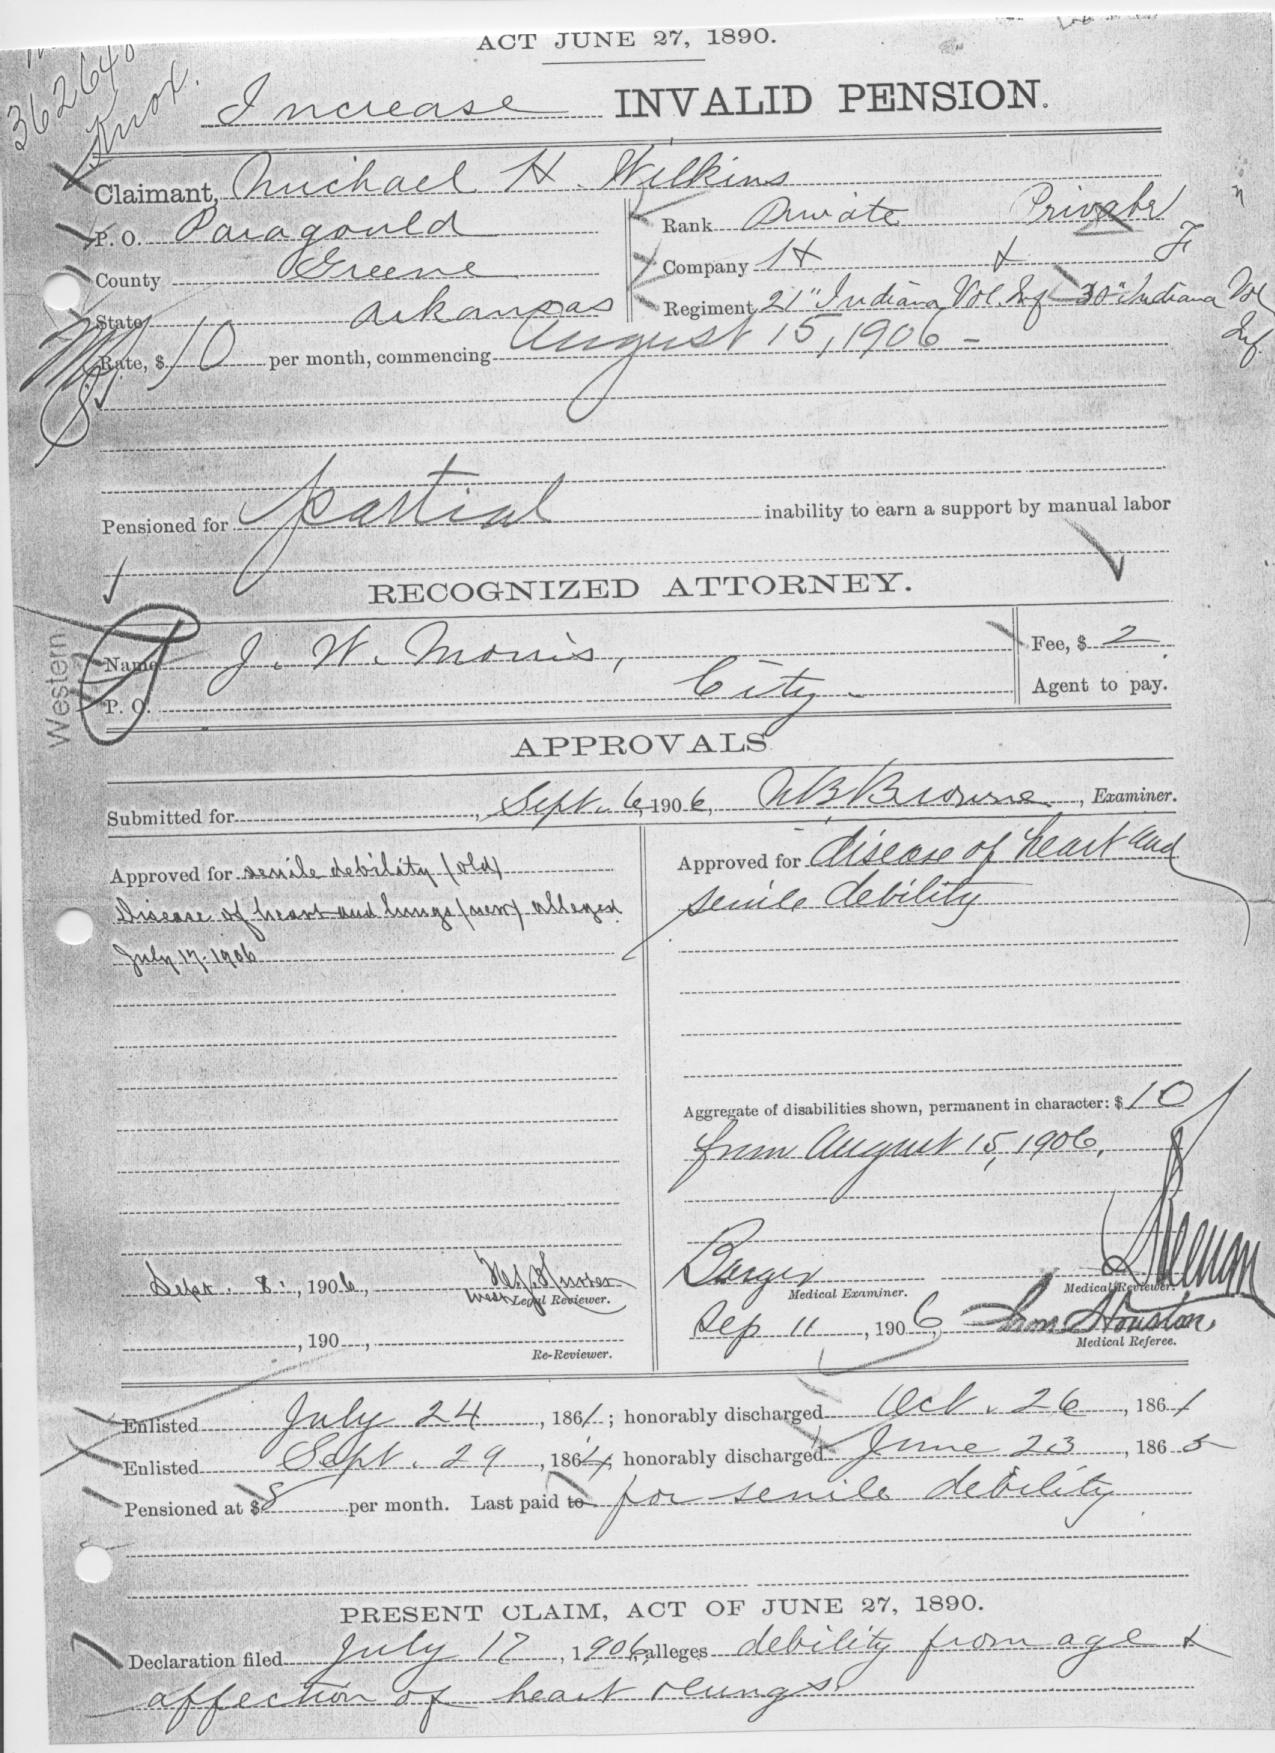 ACT JUNE 27, 1890.
362640
Knox.
Increase INVALID PENSION.
Claimant, Michael H. Wilkins
P. O. Paragould
County Greene
State Arkansas
Rank Private Private
Company H & F
Regiment 21" Indiana Vol Inf 30" Indiana Vol Inf
Rate, $ 10 per month, commencing August 15, 1906 -
Pensioned for partial inability to earn a support by manual labor
RECOGNIZED ATTORNEY.
Western
Name J. W. Morris,
P. O. City.
Fee, $ 2
Agent to pay.
APPROVALS
Submitted for , Sept. 6, 1906, Browne, Examiner.
Approved for senile debility (old)
Disease of heart and lungs (new) alleged
July 17. 1906
Sept. 8, 1906,
Legal Reviewer.
, 190 ,
Re-Reviewer.
Approved for disease of heart and
senile debility
Aggregate of disabilities shown, permanent in character: $ 10
from August 15, 1906,
Barger
Medical Examiner.
Medical Reviewer.
Sep 11, 1906, Houston,
Medical Referee.
Enlisted July 24, 1861; honorably discharged Oct. 26, 1861
Enlisted Sept. 29, 1864; honorably discharged June 23, 1865
Pensioned at $ 8 per month. Last paid to for senile debility
PRESENT CLAIM, ACT OF JUNE 27, 1890.
Declaration filed July 17, 1906, alleges debility from age &
affection of heart & lungs